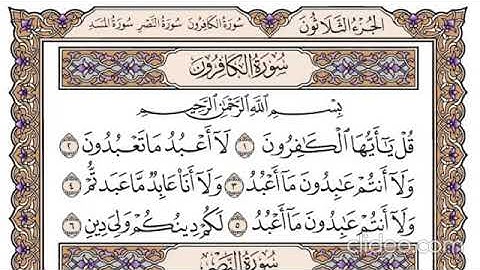 سُورَةُ الكَافِرُونَ سُورَةُ النَّصْرِ سُورَةُ المَسَدِ
الجُزْءُ الثَّلَاثُونَ
سُورَةُ الكَافِرُونَ
بِسْمِ اللَّهِ الرَّحْمَٰنِ الرَّحِيمِ
قُلْ يَٰٓأَيُّهَا ٱلْكَٰفِرُونَ ١ لَآ أَعْبُدُ مَا تَعْبُدُونَ ٢
وَلَآ أَنتُمْ عَٰبِدُونَ مَآ أَعْبُدُ ٣ وَلَآ أَنَا۠ عَابِدٌ مَّا عَبَدتُّمْ ٤
وَلَآ أَنتُمْ عَٰبِدُونَ مَآ أَعْبُدُ ٥ لَكُمْ دِينُكُمْ وَلِيَ دِينِ ٦
سُورَةُ النَّصْرِ
clideo.com